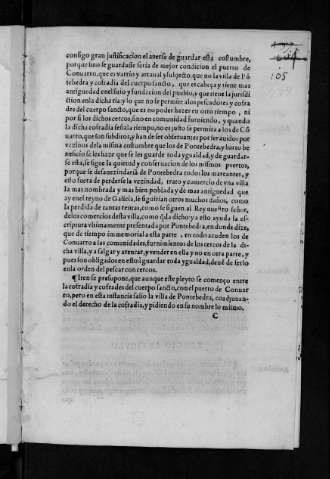 105
consigo gran justificacion el averse de guardar esta costumbre,
porque si no se guardasse seria de mejor condicion el puerto de
Conuarro, que es varrio y arraual y subjecto, que no la villa de Põ
tebedra y cofradia del cuerpo sancto, que es cabeça y tiene mas
antiguedad en el sitio y fundacion del pueblo, y que tiene la jurisdi
cion en la dicha ria y lo que no se permite a los pescadores y cofra
des del cuerpo sancto, que es no poder hazer en otro tiempo, ni
por si los dichos cercos, sino en comunidad fauoresciendo, y quando
la dicha cofradia señala tiempo, no es justo se permita a los de Cõ
uarro, que son subditos, y han de ser obseruantes por ser auidos por
vezinos de la misma costumbre que los de Pontebedra, y harto be
neficio se les haze que se les guarde toda ygualdad, y de guardar-
se esta, se sigue la quietud y conseruacion de los mismos puertos,
porque se desauezindaria de Pontebedra todos los mareantes, y
esto fuera de perderse la vezindad, trato y comercio de vna villa
la mas nombrada y mas bien poblada y de mas antiguedad que
ay en el reyno de Galicia, se siguirian otros muchos daños, como
la perdida de tantas rentas, como se siguen al Rey nuestro señor,
de los comercios desta villa, como q̃da dicho: y a esto ayuda la es-
criptura vltimamente presentada por Pontebedra, en donde dize,
que de tiempo immemorial a esta parte, en todo acuden los de
Conuarro a las comunidades, fornimientos de los cercos de la di-
cha villa, y a salgar y atrincar, y vender en ella y no en otra parte, y
pues son obligados en esto guardar toda ygualdad, deue de ser lo
en la orden del pescar con cercos.
¶ Iten se presupone, que aunque este pleyto se començo entre
la cofradia y cofrades del cuerpo sancto, con el puerto de Conuar
ro, pero en esta instancia salio la villa de Pontebedra, coadjuuan-
do el derecho de la cofradia, y pidiendo en su nombre lo mismo,
C